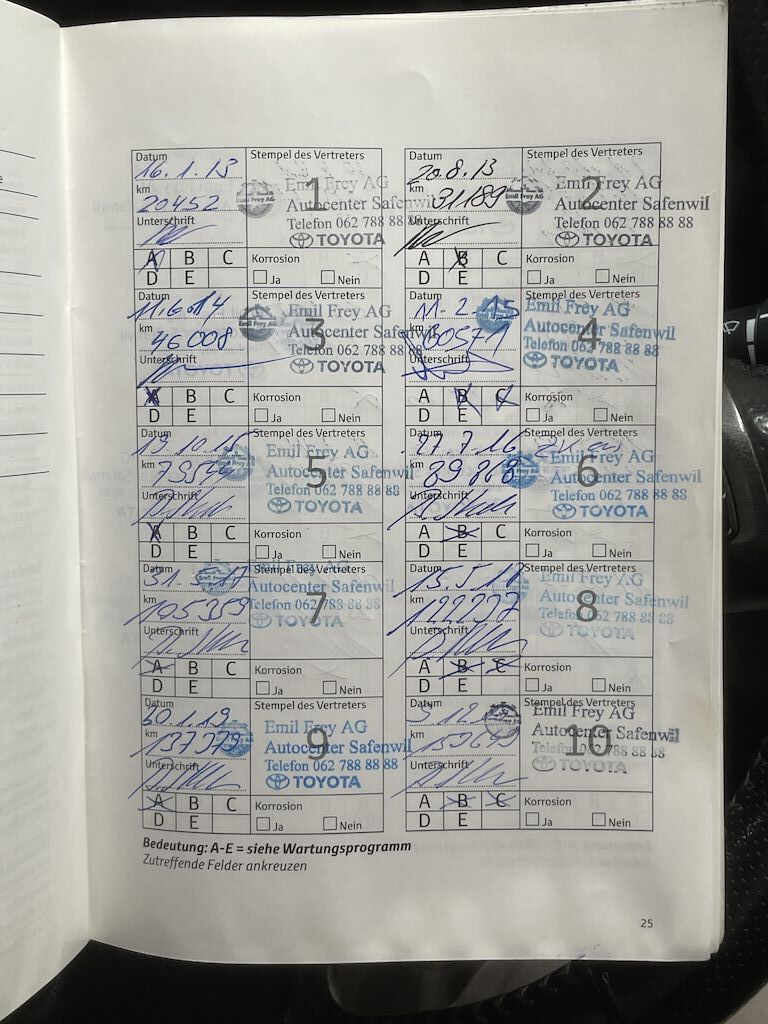 Datum
16.1.13
km
20452
Unterschrift
Stempel des Vertreters
1
Emil Frey AG
Autocenter Safenwil
Telefon 062 788 88 88
TOYOTA
A B C
D E
Korrosion
Ja Nein
Datum
20.8.13
km
31189
Unterschrift
Stempel des Vertreters
2
Emil Frey AG
Autocenter Safenwil
Telefon 062 788 88 88
TOYOTA
A B C
D E
Korrosion
Ja Nein
Datum
11.6.014
km
46008
Unterschrift
Stempel des Vertreters
3
Emil Frey AG
Autocenter Safenwil
Telefon 062 788 88 88
TOYOTA
A B C
D E
Korrosion
Ja Nein
Datum
11.2.15
km
60571
Unterschrift
Stempel des Vertreters
4
Emil Frey AG
Autocenter Safenwil
Telefon 062 788 88 88
TOYOTA
A B C
D E
Korrosion
Ja Nein
Datum
19.10.15
km
Unterschrift
Stempel des Vertreters
5
Emil Frey AG
Autocenter Safenwil
Telefon 062 788 88 88
TOYOTA
A B C
D E
Korrosion
Ja Nein
Datum
km
89868
Unterschrift
Stempel des Vertreters
6
Emil Frey AG
Autocenter Safenwil
Telefon 062 788 88 88
TOYOTA
A B C
D E
Korrosion
Ja Nein
Datum
km
105359
Unterschrift
Stempel des Vertreters
7
Emil Frey AG
Autocenter Safenwil
Telefon 062 788 88 88
TOYOTA
A B C
D E
Korrosion
Ja Nein
Datum
km
Unterschrift
Stempel des Vertreters
8
Emil Frey AG
Autocenter Safenwil
Telefon 062 788 88 88
TOYOTA
A B C
D E
Korrosion
Ja Nein
Datum
30.1.19
km
137379
Unterschrift
Stempel des Vertreters
9
Emil Frey AG
Autocenter Safenwil
Telefon 062 788 88 88
TOYOTA
A B C
D E
Korrosion
Ja Nein
Datum
km
Unterschrift
Stempel des Vertreters
10
Emil Frey AG
Autocenter Safenwil
Telefon 062 788 88 88
TOYOTA
A B C
D E
Korrosion
Ja Nein
Bedeutung: A-E = siehe Wartungsprogramm
Zutreffende Felder ankreuzen
25